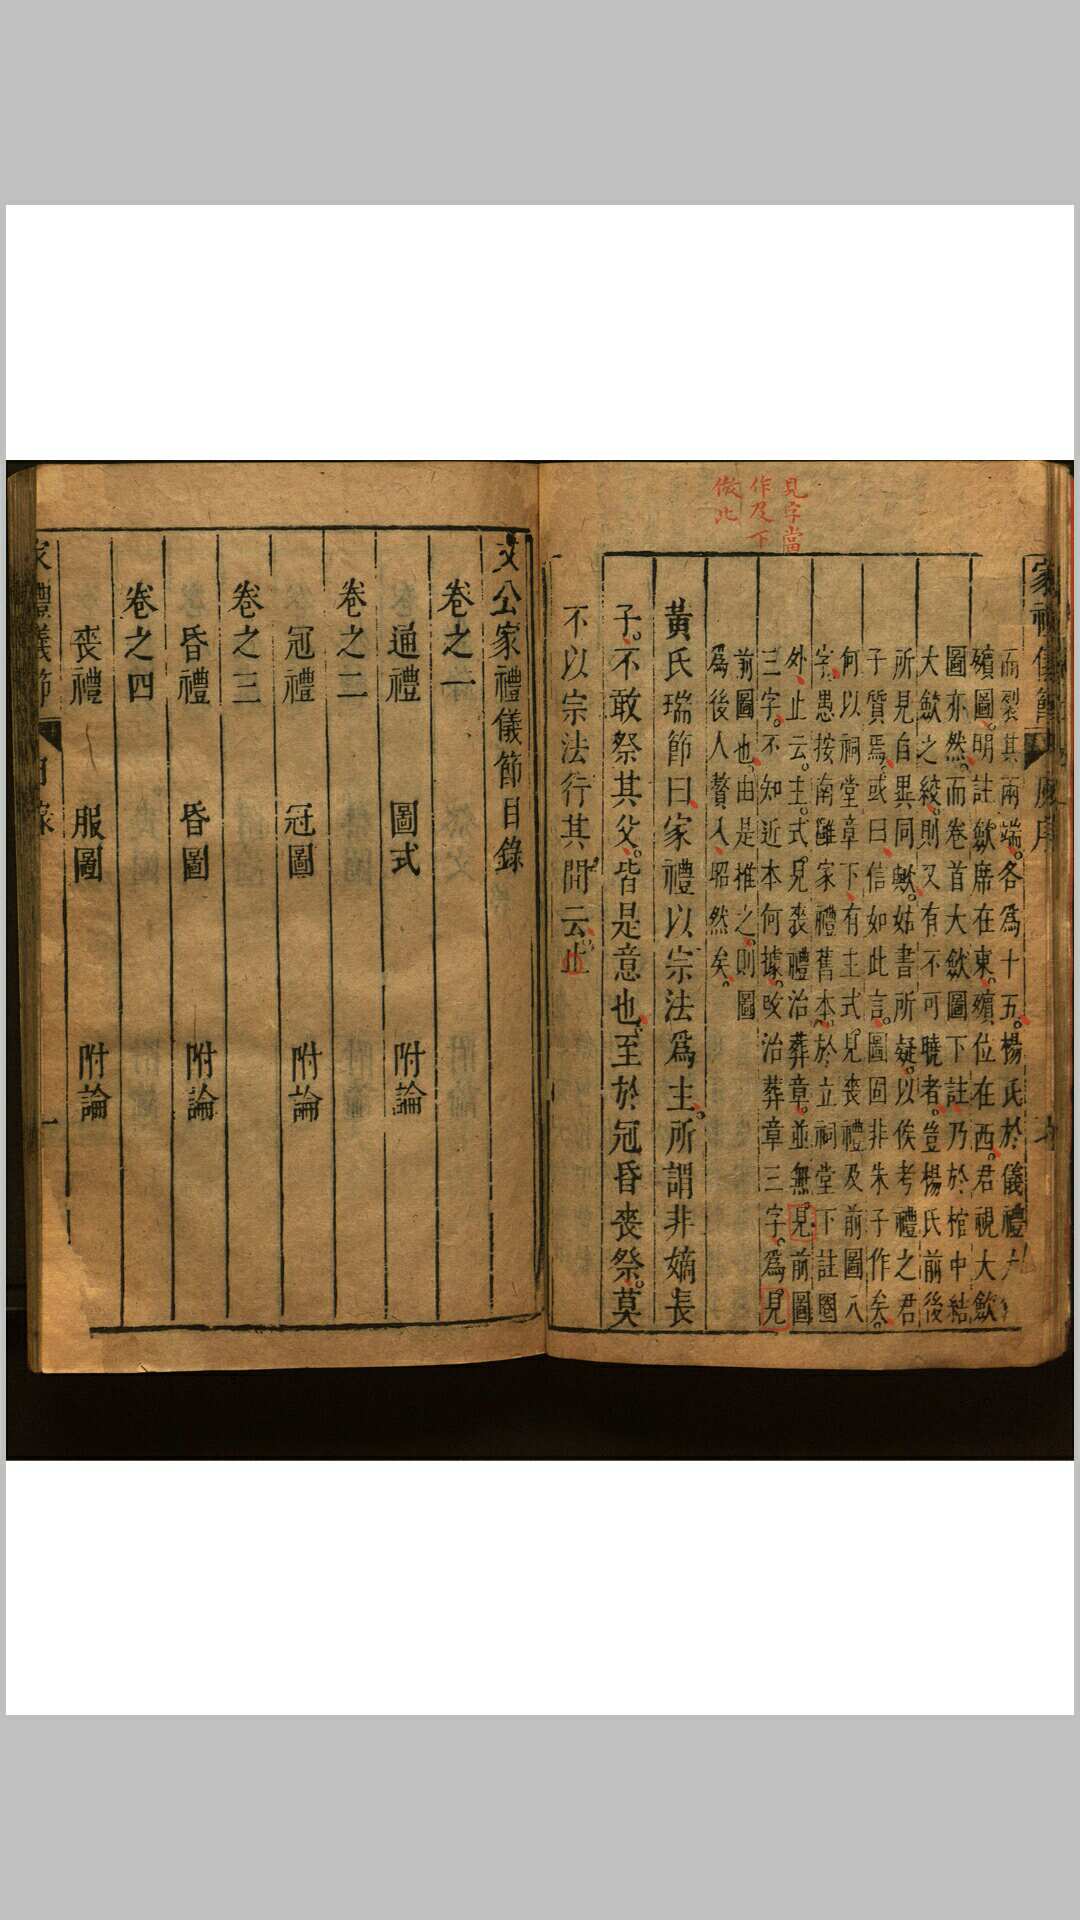 見字當
作及下
倣此
家禮儀節 序
而裂其兩端。各爲十五。楊氏於儀禮大
殯圖。明註歛席在東。殯位在西。君視大歛
圖亦然。而卷首大歛圖下註。乃於棺中結
大歛之絞。則又有不可曉者。豈楊氏前後
所見自異同歟。姑書所疑。以俟考禮之君
子質焉。或曰。信如此言。圖固非朱子作矣。
何以祠堂章下。有主式見喪禮及前圖八
字。愚按南雝家禮舊本。於立祠堂下註圈
外。止云。主式。見喪禮治葬章。並無。見前圖
三字。不知近本何據。改治葬章三字。爲見
前圖也。由是推之。則圖
爲後人贅入。昭然矣。
黃氏瑞節曰。家禮以宗法爲主。所謂非嫡長
子。不敢祭其父。皆是意也。至於冠昏喪祭。莫
不以宗法行其間云。止
文公家禮儀節目錄
卷之一
通禮 圖式 附論
卷之二
冠禮 冠圖 附論
卷之三
昏禮 昏圖 附論
卷之四
喪禮 服圖 附論
家禮儀節 目錄 一